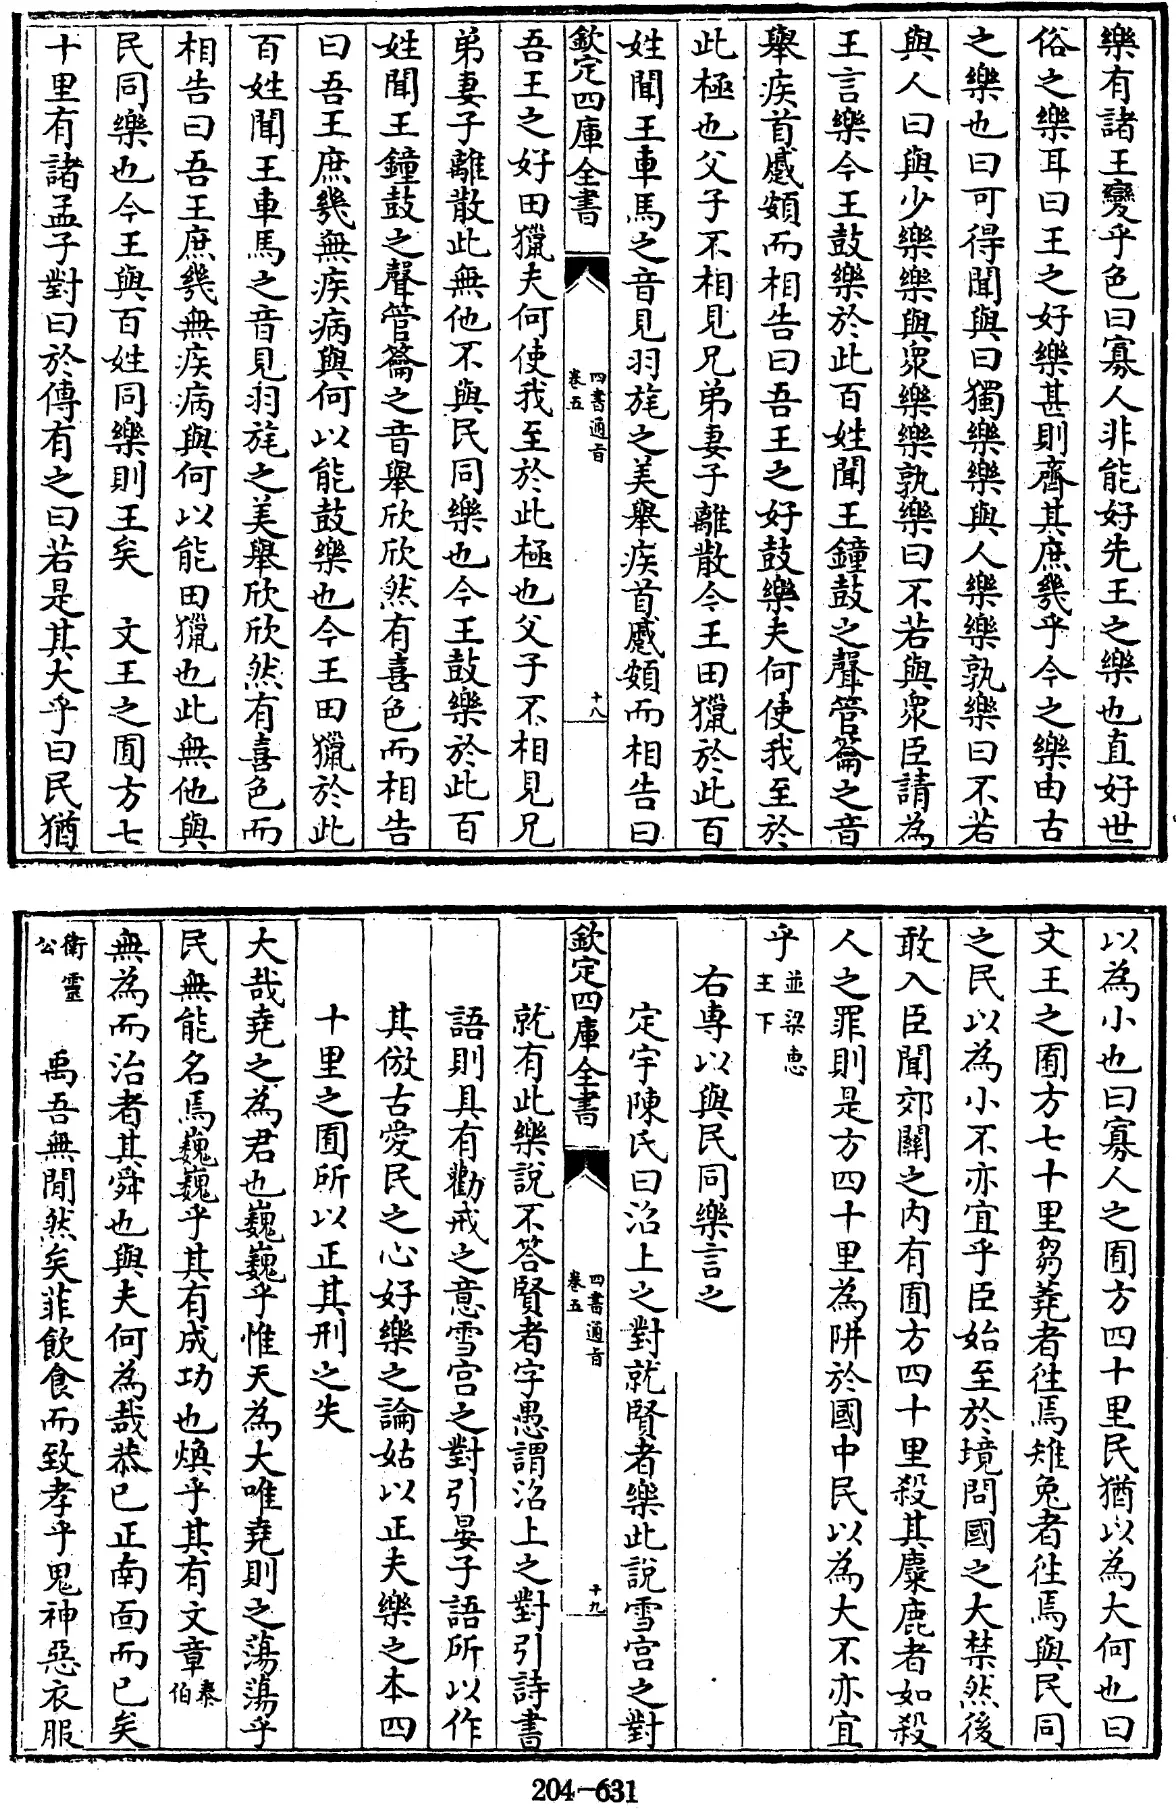 樂有諸王變乎色曰寡人非能好先王之樂也直好世
俗之樂耳曰王之好樂甚則齊其庶幾乎今之樂由古
之樂也曰可得聞與曰獨樂樂與人樂樂孰樂曰不若
與人曰與少樂樂與衆樂樂孰樂曰不若與衆臣請為
王言樂今王鼓樂於此百姓聞王鐘鼓之聲管籥之音
舉疾首蹙頞而相告曰吾王之好鼓樂夫何使我至於
此極也父子不相見兄弟妻子離散今王田獵於此百
姓聞王車馬之音見羽旄之美舉疾首蹙頞而相告曰
欽定四庫全書
四書通旨
卷五
十八
吾王之好田獵夫何使我至於此極也父子不相見兄
弟妻子離散此無他不與民同樂也今王鼓樂於此百
姓聞王鐘鼓之聲管籥之音舉欣欣然有喜色而相告
曰吾王庶幾無疾病與何以能鼓樂也今王田獵於此
百姓聞王車馬之音見羽旄之美舉欣欣然有喜色而
相告曰吾王庶幾無疾病與何以能田獵也此無他與
民同樂也今王與百姓同樂則王矣　文王之囿方七
十里有諸孟子對曰於傳有之曰若是其大乎曰民猶
以為小也曰寡人之囿方四十里民猶以為大何也曰
文王之囿方七十里芻蕘者徃焉雉兔者徃焉與民同
之民以為小不亦宜乎臣始至於境問國之大禁然後
敢入臣聞郊關之内有囿方四十里殺其麋鹿者如殺
人之罪則是方四十里為阱於國中民以為大不亦宜
乎並梁惠王下
右専以與民同樂言之
定宇陳氏曰沼上之對就賢者樂此說雪宫之對
欽定四庫全書
四書通旨
卷五
十九
就有此樂説不答賢者字愚謂沼上之對引詩書
語則具有勸戒之意雪宫之對引晏子語所以作
其倣古愛民之心好樂之論姑以正夫樂之本四
十里之囿所以正其刑之失
大哉堯之為君也巍巍乎惟天為大唯堯則之蕩蕩乎
民無能名焉巍巍乎其有成功也煥乎其有文章泰伯
無為而治者其舜也與夫何為哉恭已正南面而已矣
衛靈公　禹吾無間然矣菲飲食而致孝乎鬼神惡衣服
204-631